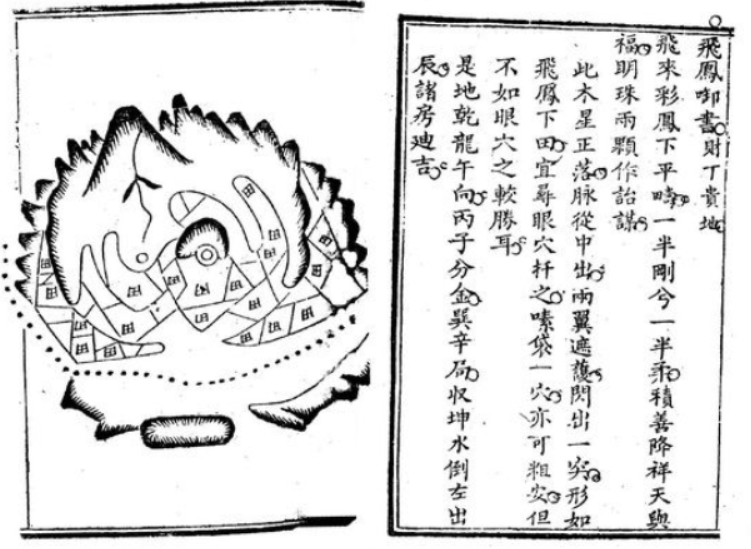 飛鳳啣書財丁貴地
飛來彩鳳下平疇一半剛兮一半柔積善降祥天與
福明珠兩顆作詒謀
此木星正落脉從中出兩翼遮護閃出一突形如
飛鳳下田宜尋眼穴扦之嗉袋一穴亦可粗安但
不如眼穴之較勝耳
是地乾龍午向丙子分金巽辛局收坤水倒左出
辰諸房廸吉
田
田
田
田
田
田
田
田
田
田
田
田